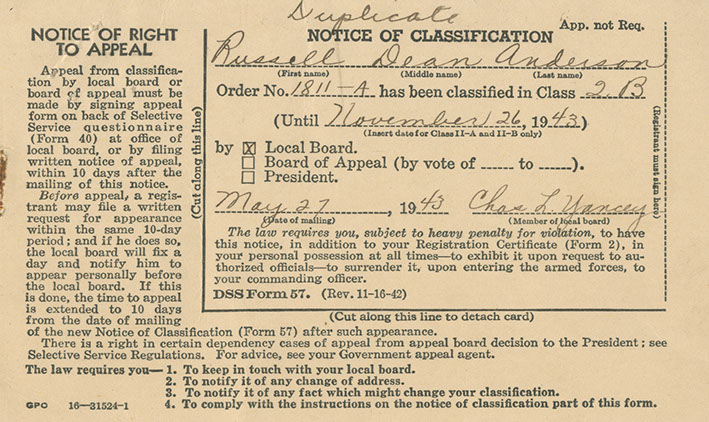 Duplicate
App. not Req.
NOTICE OF RIGHT
TO APPEAL
Appeal from classifica-
tion by local board or
board of appeal must be
made by signing appeal
form on back of Selective
Service questionnaire
(Form 40) at office of
local board, or by filing
written notice of appeal,
within 10 days after the
mailing of this notice.
Before appeal, a regis-
trant may file a written
request for appearance
within the same 10-day
period; and if he does so,
the local board will fix a
day and notify him to
appear personally before
the local board. If this
is done, the time to appeal
is extended to 10 days
from the date of mailing
of the new Notice of Classification (Form 57) after such appearance.
(Cut along this line)
NOTICE OF CLASSIFICATION
Russell Dean Anderson
(First name) (Middle name) (Last name)
Order No. 1811-A has been classified in Class 2B
(Until November 26, 1943)
(Insert date for Class II-A and II-B only)
by ☒ Local Board.
☐ Board of Appeal (by vote of ------ to ------).
☐ President.
May 27, 1943 Chas L Yancey
(Date of mailing) (Member of local board)
The law requires you, subject to heavy penalty for violation, to have
this notice, in addition to your Registration Certificate (Form 2), in
your personal possession at all times—to exhibit it upon request to au-
thorized officials—to surrender it, upon entering the armed forces, to
your commanding officer.
DSS Form 57. (Rev. 11-16-42)
(Registrant must sign here)
(Cut along this line to detach card)
There is a right in certain dependency cases of appeal from appeal board decision to the President; see
Selective Service Regulations. For advice, see your Government appeal agent.
The law requires you— 1. To keep in touch with your local board.
2. To notify it of any change of address.
3. To notify it of any fact which might change your classification.
GPO 16—31524-1 4. To comply with the instructions on the notice of classification part of this form.